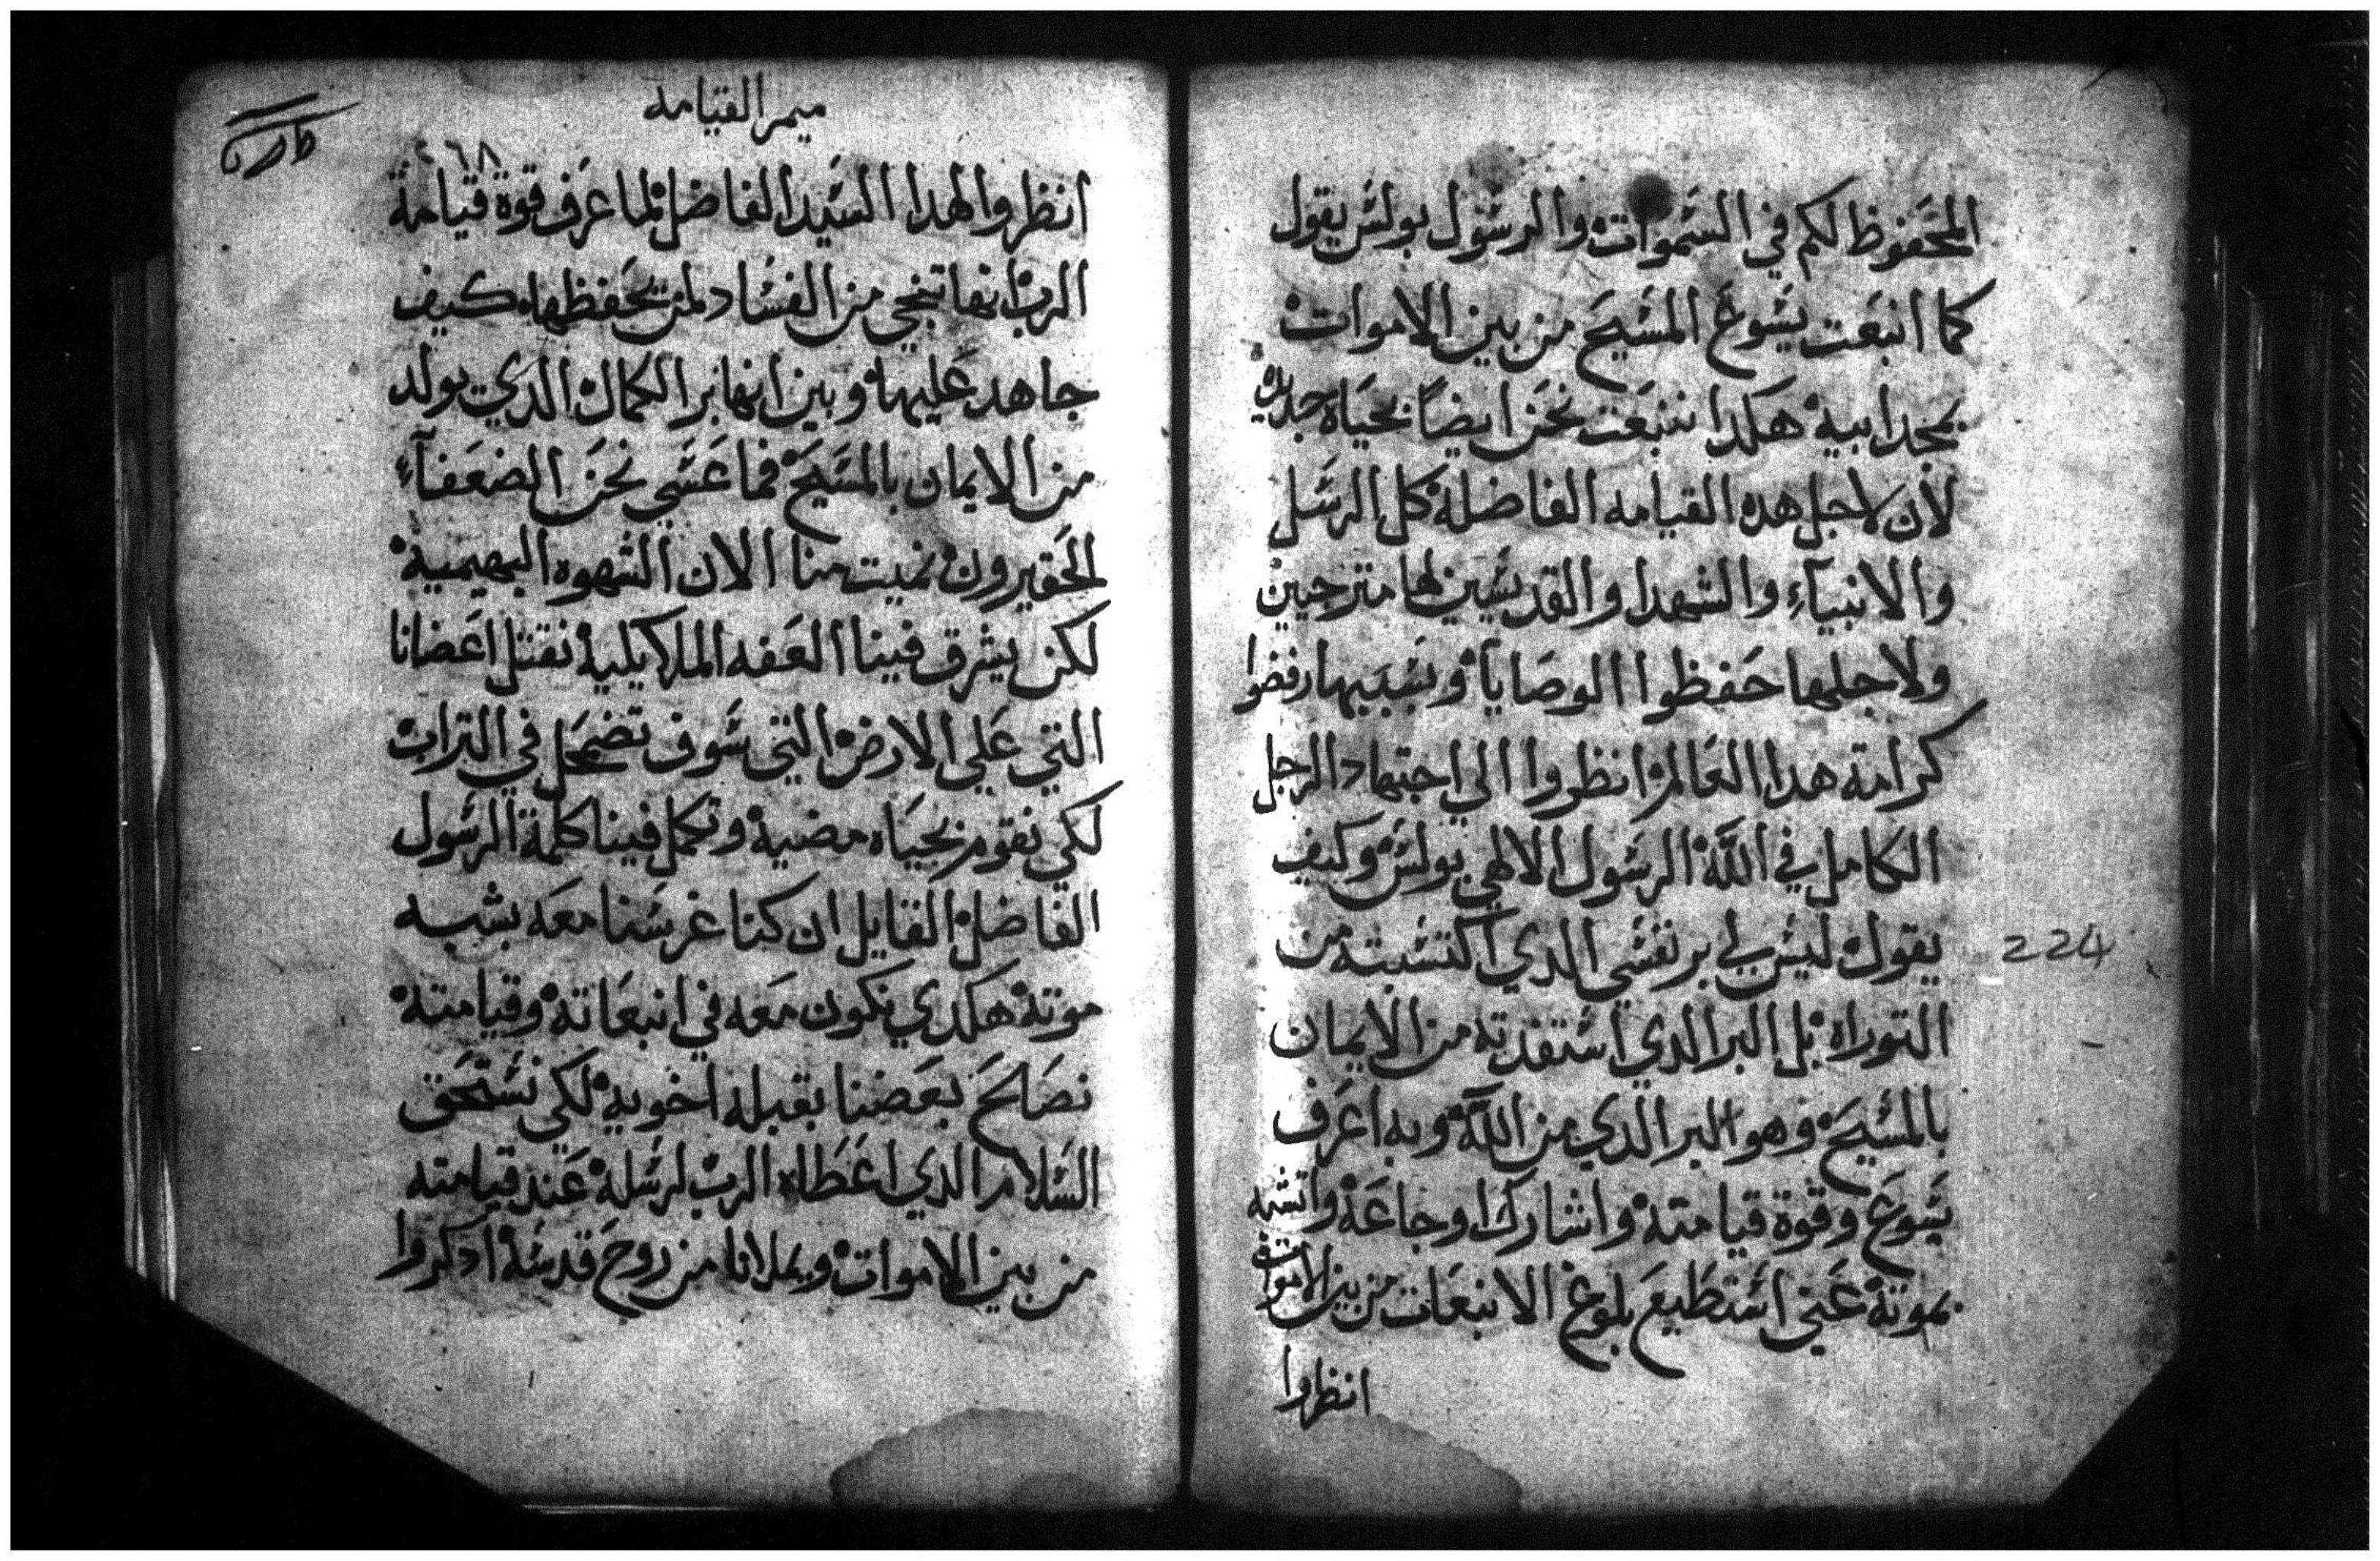 المحفوظ لكم في السموات والرسول بولس يقول
كما انبعت يسوع المسيح من بين الاموات
بمجد ابيه هكدا ننبعت نحن ايضاً بحياه جديده
لأن لاجل هده القيامه الفاضلة كل الرسل
والانبيآء والشهدا والقديسين لها مترجيين
ولاجلها حفظوا الوصايا وبسببها رفضوا
كرامة هدا العالم انظروا الي اجتهاد الرجل
الكامل في الله الرسول الالاهي بولس وكيف
يقول ليس لي بر نفسي الدي اكتسبته من
التوراه بل البر الدي استفدته من الايمان
بالمسيح وهو البر الدي من الله وبه اعرف
يسوع وقوة قيامته واشارك اوجاعة واتشبه
بموته عني استطيع بلوغ الانبعات من بين الاموات
انظروا
224
ميمر القيامه
٢٦٨
انظروا لهدا السيد الفاضل لما عرف قوة قيامة
الرب انها تنجي من الفساد لمن يحفظها كيف
جاهد عليها وبين انها بر الكمال الدي يولد
من الايمان بالمسيح فما عسي نحن الضعفآء
الحقيرون نميت منا الان الشهوه البهيمية
لكن يشرق فينا العفه الملايكية نقتل اعضانا
التي علي الارض التي سوف تضمحل في التراب
لكي نقوم بحياه مضية وتكمل فينا كلمة الرسول
الفاضل القايل ان كنا غرسنا معه بشبه
موته هكدي نكون معه في انبعاته وقيامته
نصالح بعضنا بقبله اخوية لكي نستحق
السلام الدي اعطاه الرب لرسله عند قيامته
من بين الاموات ويملانا من روح قدسه ادكروا